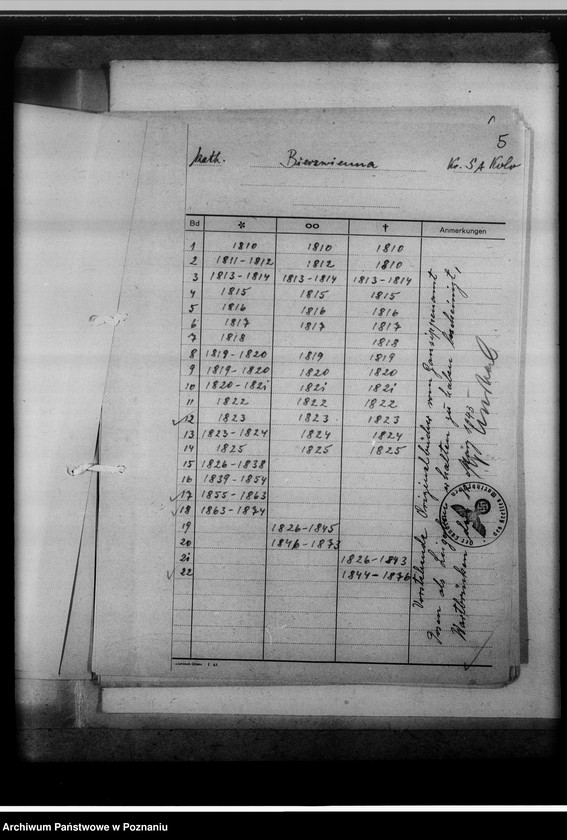 5
kath. Bierzwienna Kr. S A Kolo
Bd * ∞ † Anmerkungen
1 1810 1810 1810
2 1811-1812 1812 1810
3 1813-1814 1813-1814 1813-1814
4 1815 1815 1815
5 1816 1816 1816
6 1817 1817 1817
7 1818 1818
8 1819-1820 1819 1819
9 1819-1820 1820 1820
10 1820-1821 1821 1821
11 1822 1822 1822
12 1823 1823 1823
13 1823-1824 1824 1824
14 1825 1825 1825
15 1826-1838
16 1839-1854
17 1855-1863
18 1863-1874
19 1826-1845
20 1846-1873
21 1826-1843
22 1844-1876
Vorstehende Originalbücher vom Gausippenamt
Posen als Leihgaben erhalten zu haben bescheinigt,
Wartbrücken, den 1940
Archiwum Państwowe w Poznaniu